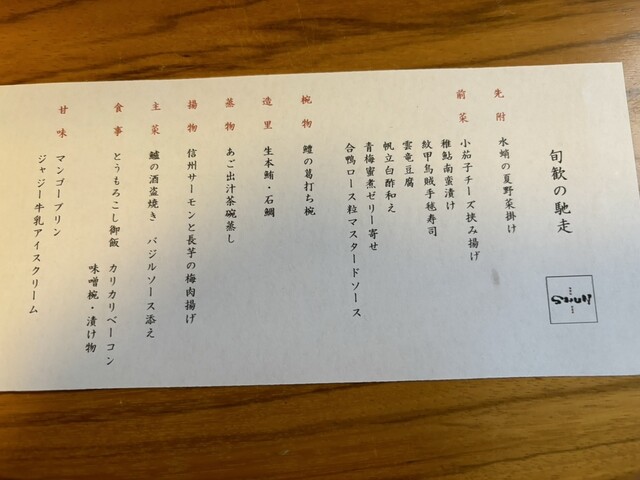 旬歓の馳走
先附
水蛸の夏野菜掛け
前菜
小茄子チーズ挟み揚げ
稚鮎南蛮漬け
紋甲烏賊手毬寿司
雲竜豆腐
帆立白酢和え
青梅蜜煮ゼリー寄せ
合鴨ロース粒マスタードソース
椀物
鱧の葛打ち椀
造里
生本鮪・石鯛
蒸物
あご出汁茶碗蒸し
揚物
信州サーモンと長芋の梅肉揚げ
主菜
鱸の酒盗焼き バジルソース添え
食事
とうもろこし御飯 カリカリベーコン
味噌椀・漬け物
甘味
マンゴープリン
ジャジー牛乳アイスクリーム